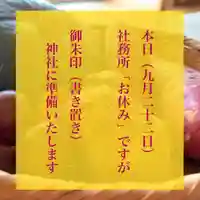 本日（九月二十二日）
社務所「お休み」ですが
御朱印（書き置き）
神社に準備いたします